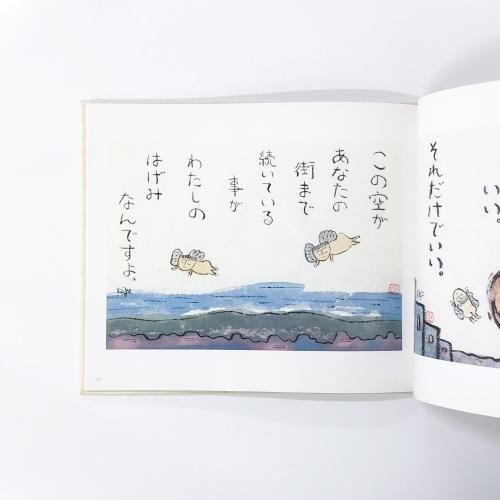 この空が
あなたの
街まで
続いている
事が
わたしの
はげみ
なんですよ。
いい。
それだけでいい。